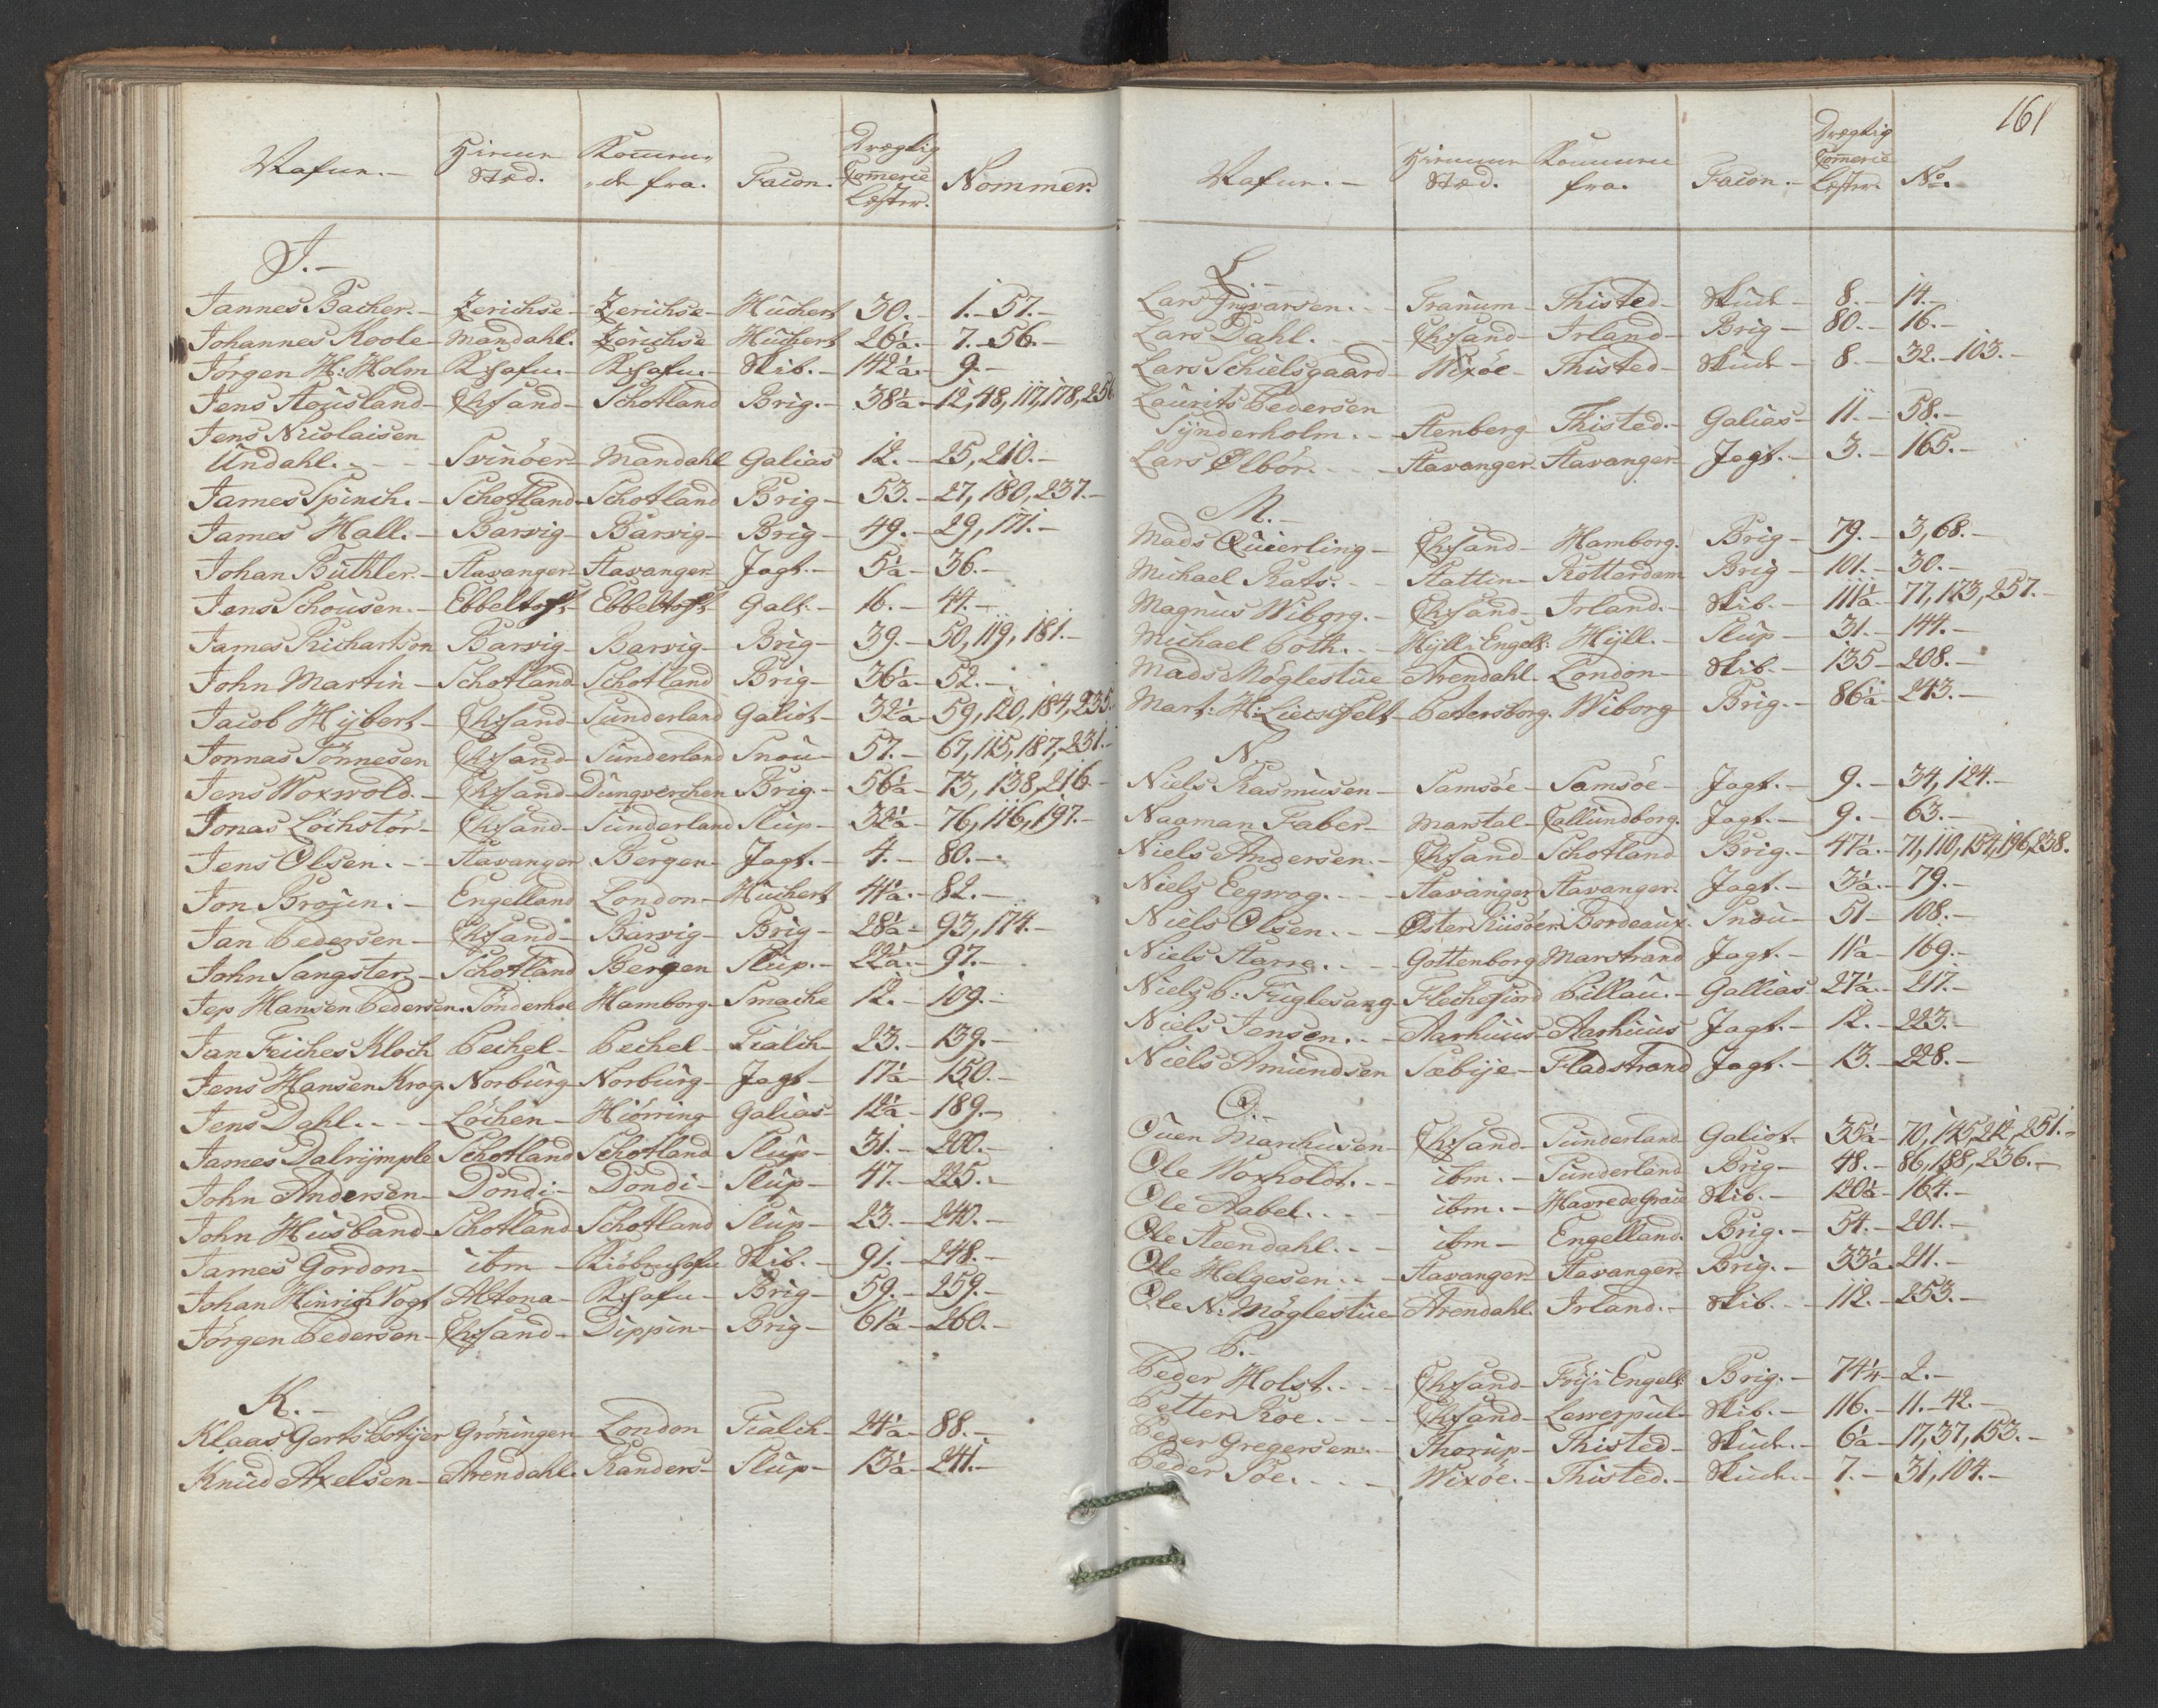 Nafn. Hiemme Stæd. Komen de fra. Facon. Drægtig Comerce Læster. Nommer.
J.
Jannes Backer. Zerichse Zerichse Huckert 30. 1.-57.
Johannes Koole Mandahl. Zerichse Huckert 26½. 7.-56.
Jörgen H: Holm Khafn. Khafn. Skib. 142½. 9.
Jens Stousland Chrsand Schotland Brig. 38½ 12, 48, 117, 178, 256
Jens Nicolaisen
Undahl. Svinöer Mandahl Galias 12. 25, 210.
James Spinck. Schotland Schotland Brig 53. 27, 180, 237.
James Hall. Barvig Barvig Brig 49. 29, 171.
Johan Buthler. Stavanger Stavanger Jagt. 5½ 36.
Jens Schousen. Ebbeltoft Ebbeltoft Galt. 16. 44.
James Richartson Barvig Barvig Brig 39. 50, 119, 181.
John Martin Schotland Schotland Brig 36½ 52.
Jacob Hÿbert Chrsand Sunderland Galiot 32½ 59, 120, 184, 235.
Jonnas Tönnesen Chrsand Sunderland Snau 57. 67, 115, 187, 231.
Jens Woxwold. Chrsand Dunqverchen Brig. 56½ 73, 138, 216
Jonas Löchstör Chrsand Sunderland Slup 32½ 76, 116, 197.
Jens Olsen. Stavanger Bergen Jagt. 4. 80.
Jon Broun. Engelland London Huckert 41½. 82.
Jan Pedersen Chrsand Barvig Brig 28½ 93, 174.
John Sangster Schotland Bergen Slup. 22½. 97.
Jep Hansen Pedersen. Sönderhoe Hamborg Smacke 12. 109.
Jan Feickes Klock Peckel Peckel Tialck 23. 139.
Jens Hansen Krog. Norburg Norburg Jagt 17½ 150.
Jens Dahl. Löcken Hiörring Galias 12½ 189.
James Dalrÿmple Schotland Schotland Slup 31. 200.
John Andersen Dondi Dondi Slup 47. 225.
John Husband Schotland Schotland Slup 23. 240.
James Gordon ibm Kiöbenhafn Skib. 91. 248.
Johan Hinrich Vogt Altona Khafn Brig 59. 259.
Jörgen Pedersen Chrsand Dippin Brig 61½ 260.
K.
Klaas Gerts Potÿer Gröningen London Tialck 24½ 88.
Knud Axelsen Arendahl. Randers Slup 13½ 241.
161
Nafn. Hiemme Stæd. Komme fra. Facon. Drægtig Comerce Læster. No.
L.
Lars Ingvarsen. Tranum Thisted Skude 8. 14.
Lars Dahl. Chrsand Irland Brig 80. 16.
Lars Schielsgaard Wixöe Thisted Skude 8. 32.-103.
Laurits Pedersen
Sÿnderholm. Stenberg Thisted. Galias 11. 58.
Lars Ølbör. Stavanger Stavanger Jagt. 3. 165.
M.
Mads Quierling Chrsand Hamborg. Brig 79. 3, 68.
Michael Rats. Stattin Rotterdam Brig 101. 30.
Magnus Wiborg. Chrsand Irland. Skib. 111½ 77, 173, 257.
Michael Poth. Hÿll i Engell: Hÿll. Slup 31. 144.
Mads Möglestue Arendahl. London Skib. 135 208.
Mart: H: Petersborg. Wiborg Brig. 86½ 243.
N.
Niels Rasmusen Samsöe Samsöe Jagt. 9. 34, 124.
Naaman Faber Marstal Callundborg. Jagt. 9. 63.
Niels Andersen. Chrsand Schotland Brig. 47½. 71, 110, 154, 196, 238.
Niels Eegwog. Stavanger Stavanger. Jagt. 3½. 79.
Niels Olsen. Øster Riisöer. Bordeaux. Snau 51 108.
Niels Starre. Gottenborg Marstrand Jagt. 11½ 169.
Niels P: Fuglesang Fleckefiord Pillau. Gallias 27½ 217.
Niels Jensen. Aarhuus Aarhuus Jagt. 12. 223.
Niels Amundsen Sæbÿe Fladstrand Jagt. 13. 228.
O.
Ouen Marckusen Chrsand Sunderland Galiot 35½ 70, 145, 212, 251.
Ole Voxholdt. ibm. Sunderland Brig 48. 86, 188, 236.
Ole Aabel. ibm. Havre de Grace Skib. 120½ 164.
Ole Steendahl. ibm Engelland. Brig. 54. 201.
Ole Helgesen. Stavanger Stavanger Brig. 33½ 211.
Ole N: Möglestue Arendahl. Irland. Skib. 112. 253.
P.
Peder Holst. Chrsand Engell: Brig. 74¼ 2.
Petter Roe. Chrsand Lewerpul Skib. 116. 11.-42.
Peder Gregersen. Thorup Thisted Skude. 6½ 17, 37, 153.
Peder Söe. Wixöe. Thisted. Skude. 7. 31, 104.